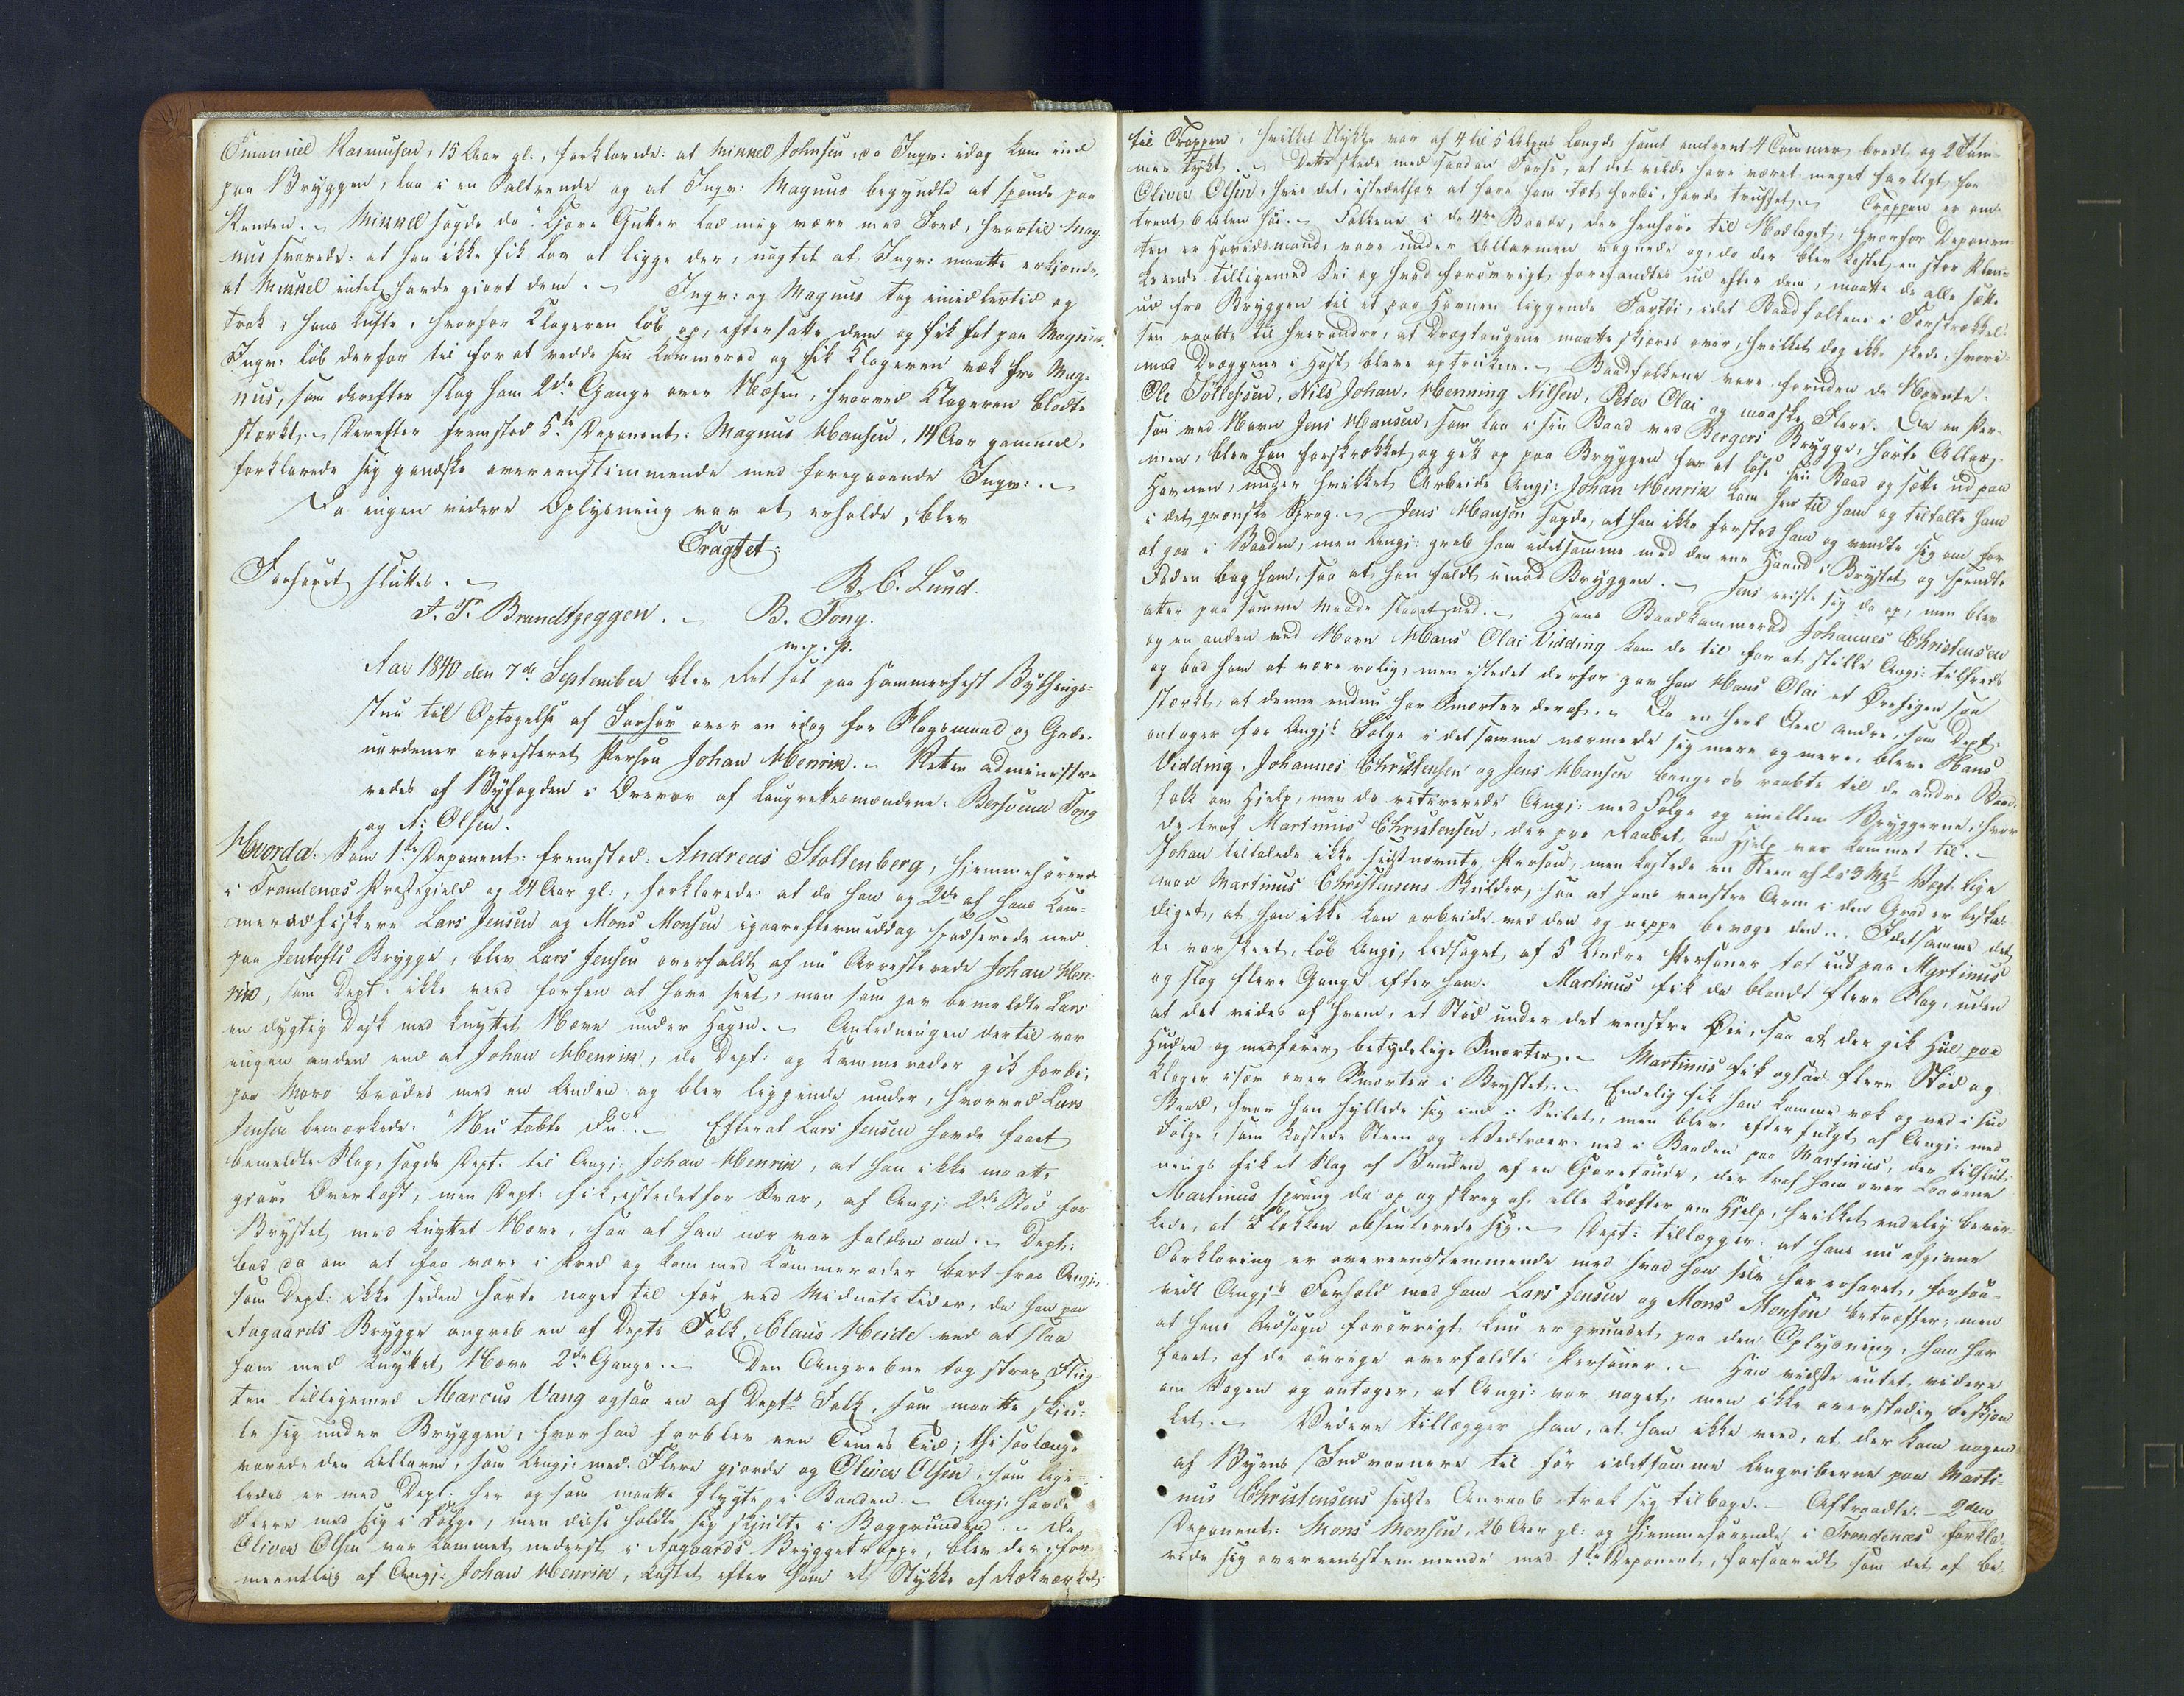 Emanuel Rasmusen, 15 Aar gl., forklarede: at Mikkel Johnsen, da Ingv: idag kom ind
paa Bryggen, laa i en Saltrende og at Ingv: Magnus begyndte at spænde paa
Renden. Mikkel sagde da: "Kjære Gutter lad mig være med Fred, hvortil Mag-
nus svarede: at han ikke fik Lov at ligge der, uagtet at Ingv: maatte erkjende,
at Mikkel intet havde gjort dem. Ingv: og Magnus tog imidlertid og
trak i hans Kufte, hvorfor Klageren løb op, eftersatte dem og fik fat paa Magnus.
Ingv: løb derfor til for at redde sin Kammerad og fik Klageren væk fra Mag-
nus, som derefter slog ham 2de Gange over Næsen, hvorved Klageren blødte
stærkt. Derefter fremstod 5te Deponent: Magnus Hansen, 14 Aar gammel,
forklarede sig gandske overeenstimmende med foregaaende Ingv:.
Da ingen videre Oplysning var at erholde, blev
Eragtet:
Forhøret sluttes.
B. C. Lund.
A. T. Brandtzeggen. B. Tong.
m. p. P.
Aar 1840 den 7de September blev Ret sat paa Hammerfest Bythings-
stue til Optagelse af Forhør over en idag for Slagsmaal og Gade-
uordener arresteret Person Johan Henrik. Retten administre-
redes af Byfogden i Overvær af Laugrettesmændene: Bersvend Tong
og A: Olsen.
Hvorda: Som 1ste Deponent: fremstod: Andreas Stoltenberg, hjemmehørende
i Trondenæs Præstegield og 24 Aar gl:, forklarede: at da han og 2de af hans Kam-
merad fiskere Lars Jensen og Mons Monsen igaareftermiddag spadserede ned
paa Jentofts Brygge, blev Lars Jensen overfaldt af nu Arresterede Johan Hen-
rik, som Dept: ikke veed forhen at have seet, men som gav bemeldte Lars
en dygtig Dask med knyttet Næve under Hagen. Anledningen dertil var
ingen anden end at Johan Henrik, da Dept: og Kammerader gik forbi,
paa Moro brødes med en Anden og blev liggende under, hvorved Lars
Jensen bemærkede: "Nu tabte Du". Efterat Lars Jensen havde faaet
bemeldte Slag, sagde Dept. til Angj: Johan Henrik, at han ikke maatte
gjøre Overlast, men Dept: fik, istedetfor Svar, af Angj: 2de Stød for
Brystet med knyttet Næve, saa at han nær var falden om. Dept:
bad da om at faa være i Fred og kom med Kammerader bort fra Angj:,
som Dept: ikke siden hørte noget til før ved Midnatstider, da han paa
Aagaards Brygge angreb en af Depts Folk, Claus Heide ved at slaa
ham med knyttet Næve 2de Gange. Den Angrebne tog strax Flug-
ten tilligemed Marcus Vang ogsaa en af Depts Folk, som maatte skju-
le sig under Bryggen, hvor han forblev een Times Tid; thi saalænge
varede den Allarm, som Angj: med Flere gjorde og Oliver Olsen, som lige-
ledes er med Dept: her og som maatte flygte i Baaden. Angj: havde
Flere med sig i Følge, men disse holdte sig skjulte i Baggrunden. Da
Oliver Olsen var kommet nederst i Aagaards Bryggetrappe, blev der, for-
meentlig af Angj: Johan Henrik, kastet efter ham et Stykke af Rækværket
til Trappen, hvilket Stykke var af 4 til 5 Alens Længde samt omtrent 4 Tommer bredt og 2 Tom-
mer tykt. Dette skede med saadan Force, at det vilde have været meget farligt for
Oliver Olsen, hvis det, istedetfor at fare ham tæt forbi, havde truffet. Trappen er om-
trent 6 Alen høi. Folkene i de 4re Baade, der henhøre til Notlaget, hvorfor Deponen-
ten er Høvedsmand, vare under Allarmen vaagnede og, da der blev kastet en stor Slen-
keende tilligemed Ski og hvad forøvrigt forefandtes ud efter dem, maatte de alle sætte
ud fra Bryggen til et paa Havnen liggende Fartøi, idet Baadfolkene i Forskrækkel-
sen raabte til hverandre, at Drægtougene maatte skjæres over, hvilket dog ikke skede, hvori-
mod Dræggene i Hast bleve optrukne. Baadfolkene vare foruden de Nævnte:
Ole Tollefsen, Nils Johan, Henning Nilsen, Peter Olai og maaske Flere. Da en Per-
son ved Navn Jens Hansen, som laa i sin Baad ved Bergers Brygge, hørte Allar-
men, blev han forskrækket og gik op paa Bryggen for at løse sin Baad og sætte ud paa
Havnen, under hvilket Arbeide Angj: Johan Henrik kom hen til ham og tiltalte ham
i det qvænske Sprog. Jens Hansen sagde, at han ikke forstod ham og vendte sig om for
at gaa i Baaden, men Angj: greb ham idetsamme med den ene Haand i Brystet og spendte
Foden bag ham, saa at han faldt imod Bryggen. Jens reiste sig da op, men blev
atter paa samme Maade slaaet ned. Hans Baadkammerad Johannes Christensen
og en anden ved Navn Hans Olai Vidding kom da til for at stille Angj: tilfreds
og bad ham at være rolig, men istedet derfor gav han Hans Olai et Ørefigen saa
stærkt, at denne endnu har Smerter deraf. Da en heel Deel andre, som Dept.
antager for Angjs Følge i detsamme nærmede sig mere og mere, bleve Hans
Vidding, Johannes Christensen og Jens Hansen bange og raabte til de andre Baad-
folk om Hjelp, men da reterirede Angj: med Følge op imellem Bryggerne, hvor
de traf Martinus Christensen, der paa Raabet om Hjelp var kommet til.
Johan tiltalede ikke sidstnævnte Person, men kastede en Steen af 2 á 3 Mks Vægt lige
mod Martinus Christensens Skulder, saa at hans venstre Arm i den Grad er beska-
diget, at han ikke kan arbeide med den og neppe bevæge den. Idetsamme det-
te var skeet, løb Angj:, ledsaget af 5 Andre Personer tæt ind paa Martinus
og slog flere Gange efter ham. Martinus fik da blandt flere Slag, uden
at det vides af hvem, et Stød under det venstre Øie, saa at der gik Hul paa
Huden og medfører betydelige Smerter. Martinus fik ogsaa flere Stød og
klager især over Smerter i Brystet. Endelig fik han komme væk og ned i sin
Baad, hvor han hyllede sig ind i Seilet, men blev efterfulgt af Angj: med
Følge, som kastede Steen og Vedtræer ned i Baaden paa Martinus, der tilslut-
nings fik et Slag af Bunden af en Tjæretønde, der traf ham over Laarene
Martinus sprang da op og skreg af alle Kræfter om Hjelp, hvilket endelig bevir-
kede, at Flokken absenterede sig. Dept: tillægger: at hans nu afgivne
Forklaring er overeensstemmende med hvad han selv har erfaret, forsaa-
vidt Angjs Forhold mod ham Lars Jensen og Mons Monsen betræffer; men
at hans Udsagn forøvrigt kun er grundet paa den Oplysning, han har
faaet af de øvrige overfaldte Personer. Han vidste intet videre
om Sagen og antager, at Angj: var noget, men ikke overstadig beskjæn-
ket. Videre tillægger han, at han ikke veed, at der kom nogen
af Byens Indvaanere til før idetsamme Angriberne paa Marti-
nus Christensens sidste Anraab trak sig tilbage. Aftraadte. 2den
Deponent: Mons Monsen, 26 Aar gl: og hjemmehørende i Trondenæs forkla-
rede sig overeensstemmende med 1ste Deponent, forsaavidt som det af be-